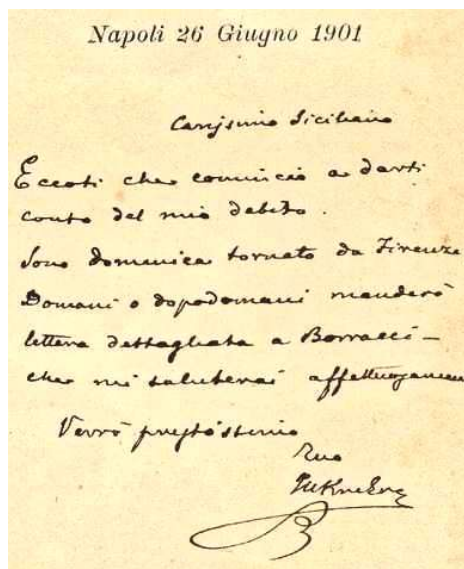 Napoli 26 Giugno 1901
Carissimo Siciliano
Eccoti che comincio a darti
conto del mio debito.
Sono domenica tornato da Firenze
Domani o dopodomani manderò
lettera dettagliata a Borracci –
che mi saluterai affettuosamen
Verrò prestóstimo
Tuo